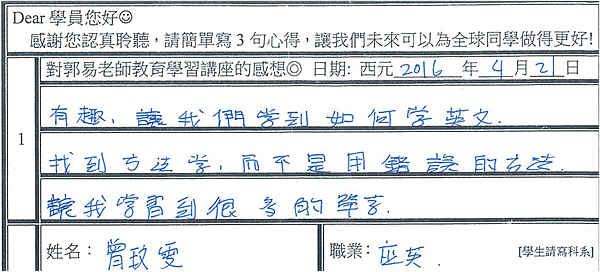 Dear 學員您好☺
感謝您認真聆聽，請簡單寫 3 句心得，讓我們未來可以為全球同學做得更好!
對郭易老師教育學習講座的感想◎ 日期: 西元 2016 年 4 月 21 日
1
有趣，讓我們学到如何学英文.
找到方法学，而不是用錯誤的方法.
讓我学習到很多的單字.
姓名：曾玟雯
職業：应英 [學生請寫科系]